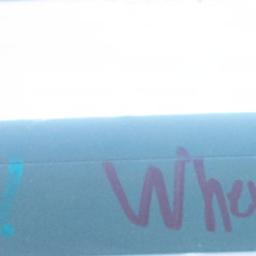 ! Whe